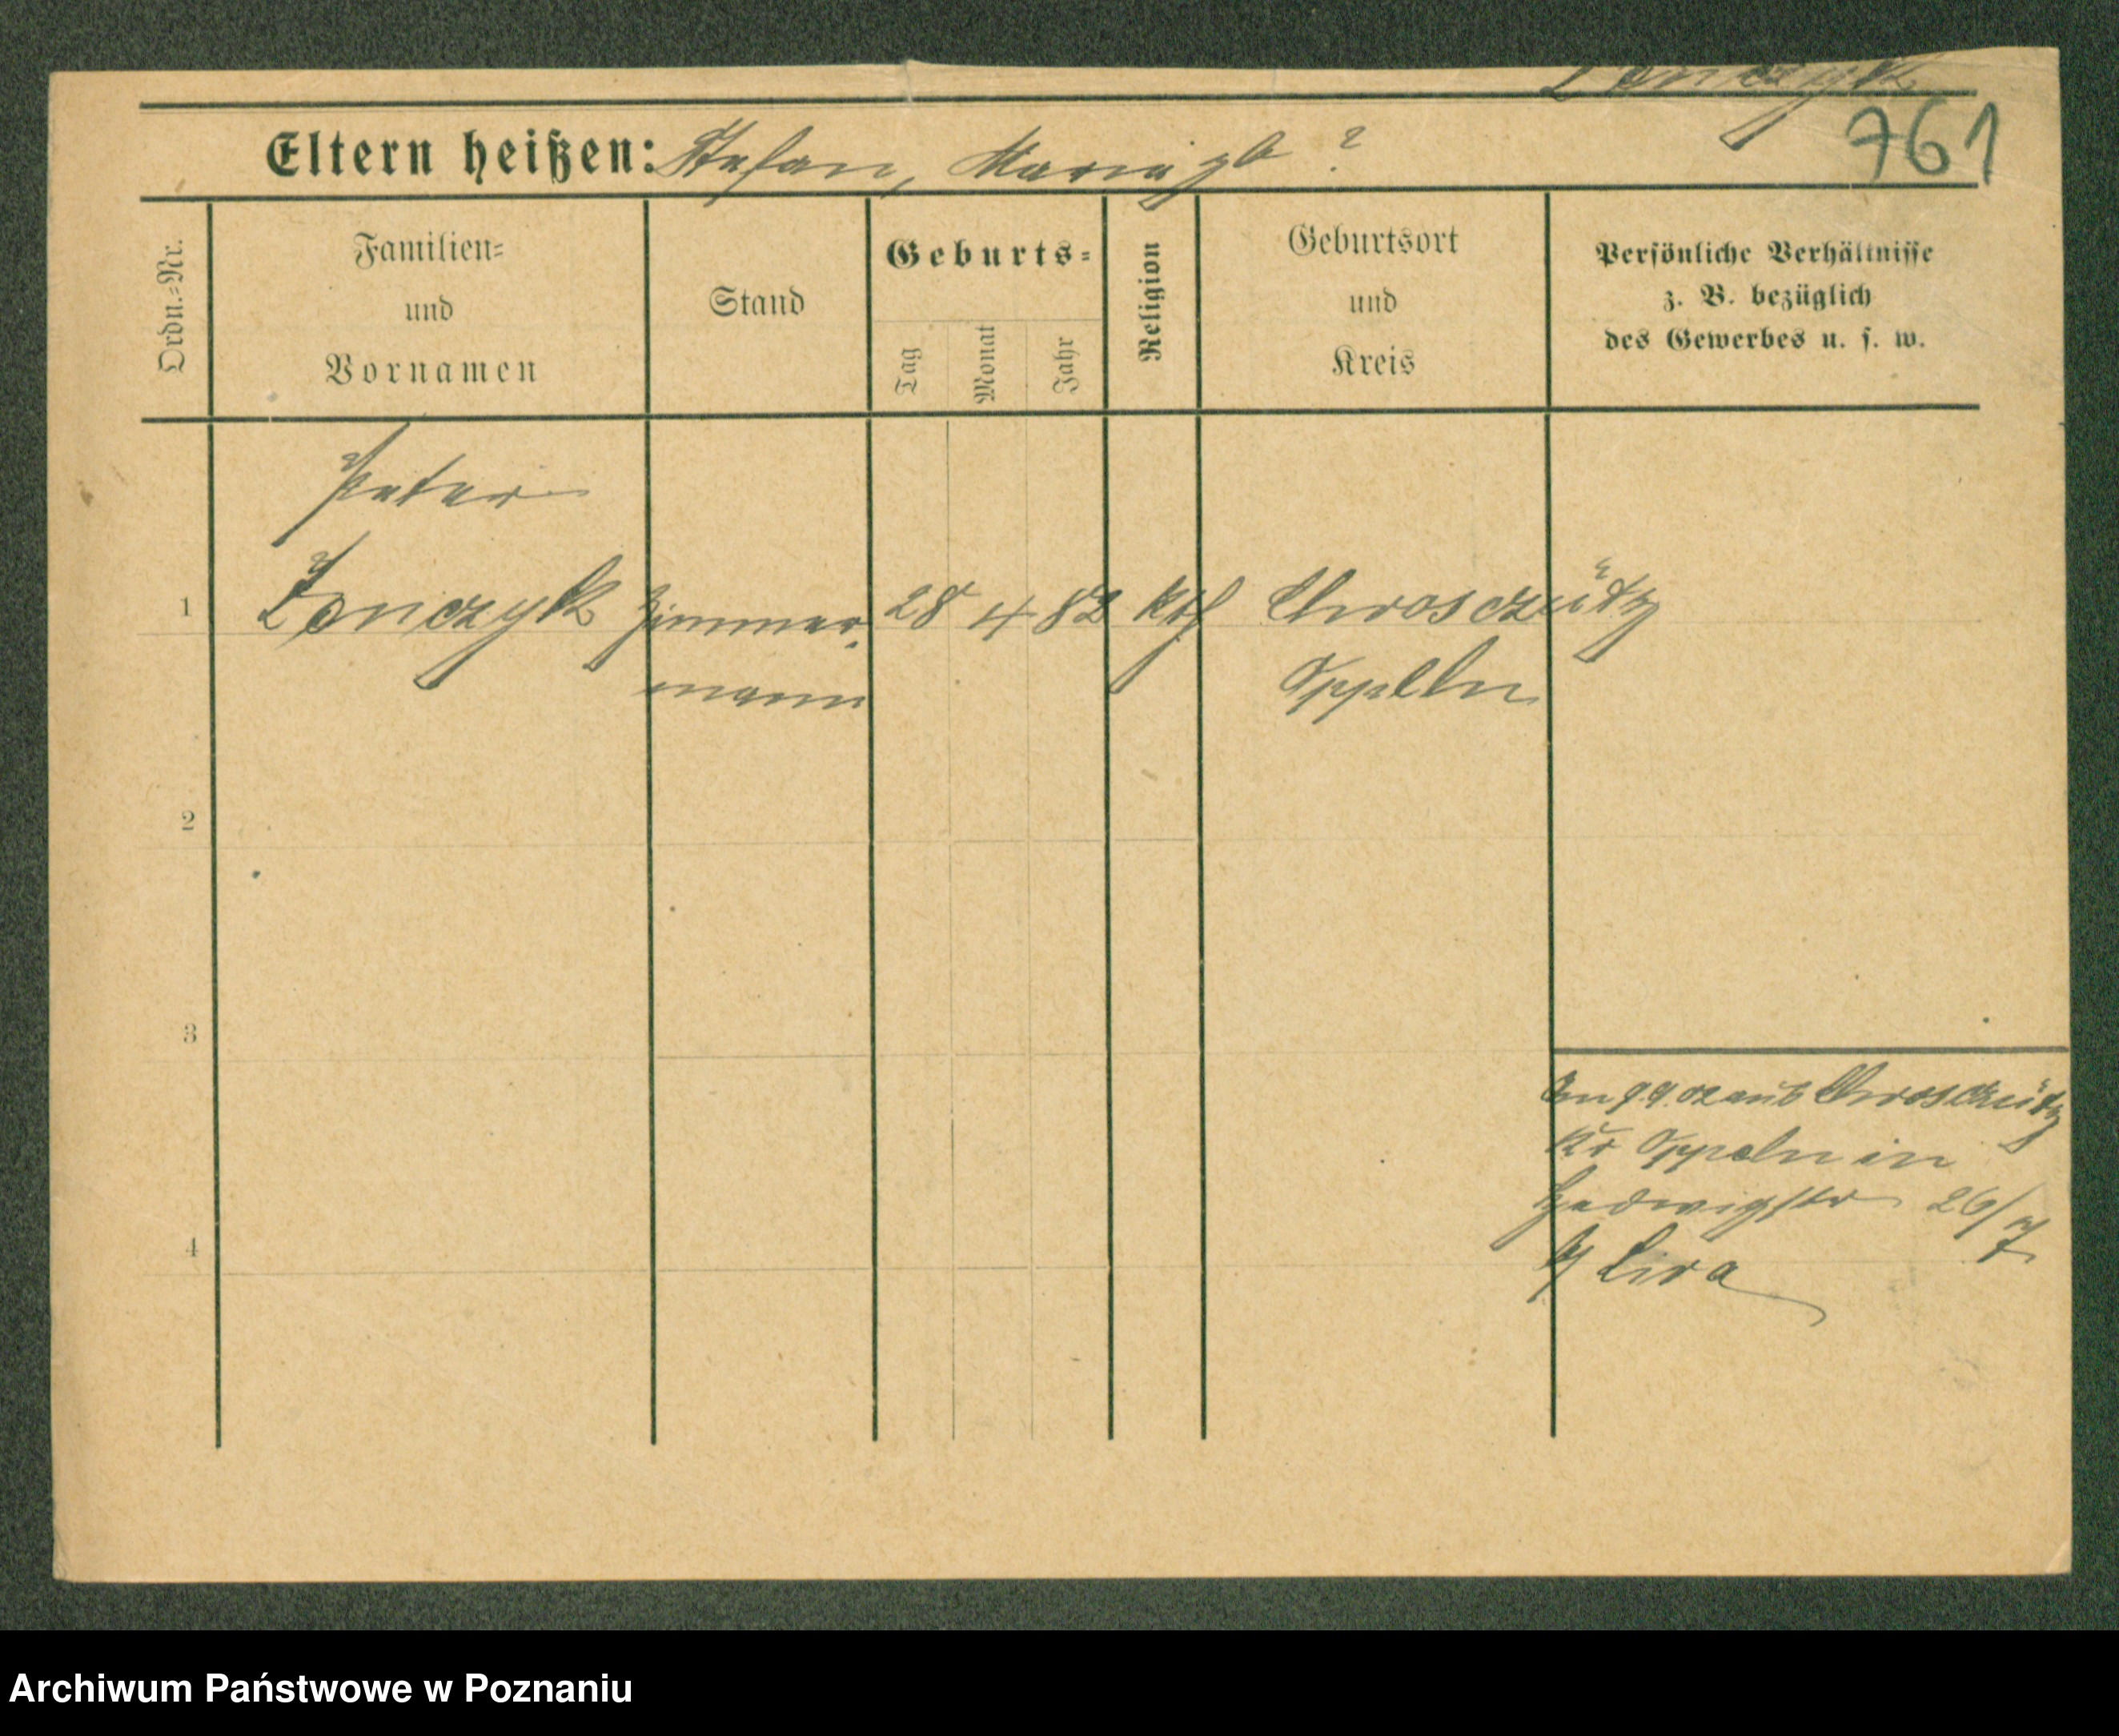 Jonczyk
761
Eltern heißen: Stefan, Maria gb ?
Ordn.=Nr.
Familien=
und
Vornamen
Stand
Geburts=
Tag
Monat
Jahr
Religion
Geburtsort
und
Kreis
Persönliche Verhältnisse
z. B. bezüglich
des Gewerbes u. s. w.
Peter
1 Jonczyk Zimmer- 28 4 82 Kth Chrosczütz
mann Oppeln
2
3
4
9.9.02 aus Chrosczütz
Kr Oppeln in
Hedwigstr 26/7
b/ Cira
Archiwum Państwowe w Poznaniu